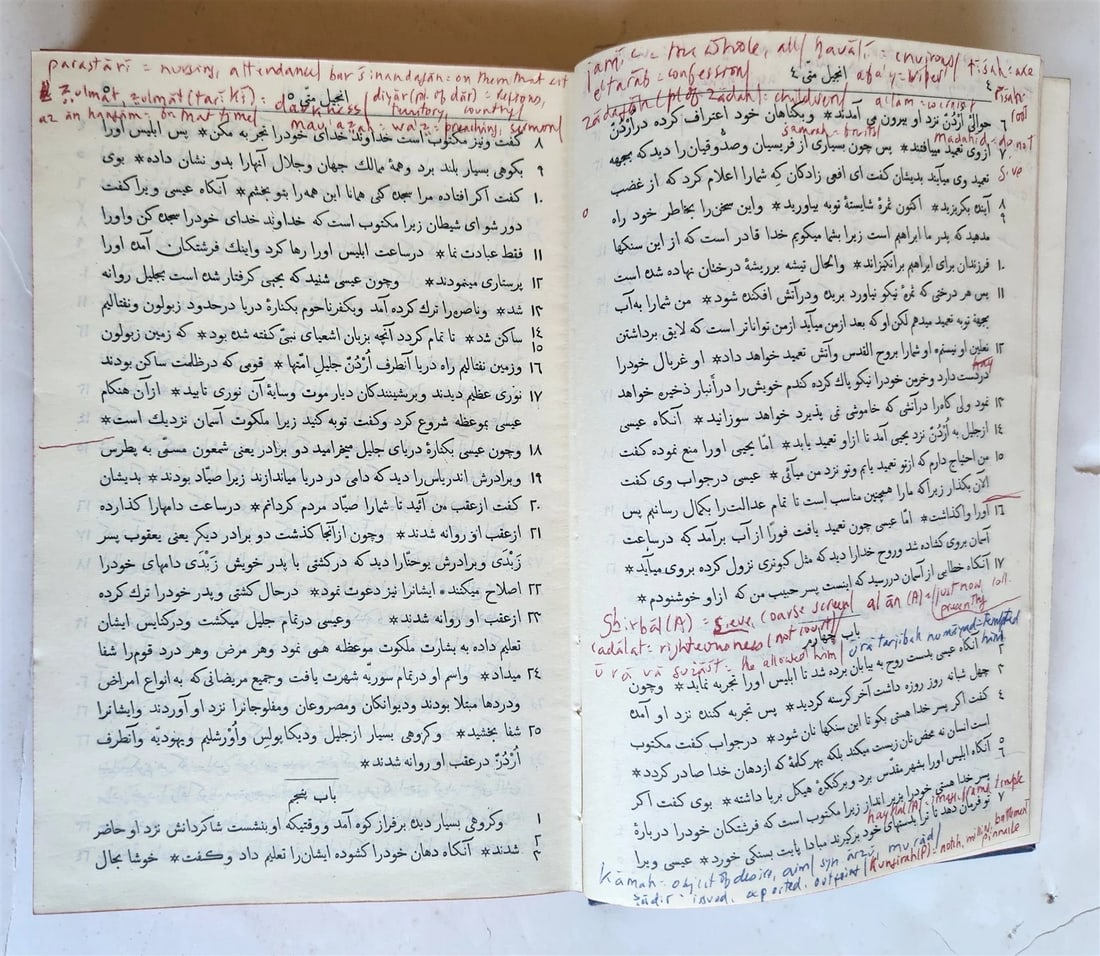 jamī' = the whole, all / havālī = environs / tīshah: axe
i'tarāb = confession / af'a'y = viper / rīshah: root
zādagān (pl of zādah): children / a'lam =
انجیل متّی ٤
٦ حوالیِٔ اُرْدُنّ نزد او بیرون می آمدند* وبگناهان خود اعتراف کرده دراُرْدُنّ
samrah = fruits / madahīd = do not give
٧ ازوی تعمید میافتند* پس چون بسیاری از فریسیان وصدّوقیان را دید که بجهه
تعمید وی میآیند بدیشان گفت ای افعی زادکان که شمارا اعلام کرد که از غضب
٨ آینده بکریزید* اکنون ثمرهٔ شایستهٔ توبه بیاورید*
٩ واین سخن را بخاطر خود راه
مدهید که پدر ما ابراهیم است زیرا بشما میکویم خدا قادر است که از این سنکها
١٠ فرزندان برای ابراهیم برانکیزاند* والحال تیشه بریشهٔ درختان نهاده شده است
١١ پس هر درختی که ثمرهٔ نیکو نیاورد بریده ودرآتش افکنده شود* من شمارا به آب
بجهة توبه تعمید میدهم لکن او که بعد ازمن میآید ازمن تواناتر است که لایق برداشتن
١٢ نعلین او نیستم* او شمارا بروح القدس وآتش تعمید خواهد داد* او غربال خودرا
hay
دردست دارد وخرمن خودرا نیکو پاك کرده کندم خویش را درانبار ذخیره خواهد
١٣ نمود ولی کاه را درآتشی که خاموشی نمی پذیرد خواهد سوزانید* آنکاه عیسی
١٤ ازجلیل به اُرْدُنّ نزد یحیی آمد تا ازاو تعمید یابد* امّا یحیی اورا منع نموده کفت
١٥ من احتیاج دارم که ازتو تعمید یابم وتو نزد من میآئی* عیسی درجواب وی کفت
الآن بکذار زیراکه مارا همچنین مناسب است تا تمام عدالت را بکمال رسانیم پس
١٦ اورا واکذاشت* امّا عیسی چون تعمید یافت فورًا از آب برآمد که درساعت
آسمان بروی کشاده شد وروح خدارا دید که مثل کبوتری نزول کرده بروی میآید*
١٧ آنکاه خطابی از آسمان دررسید که اینست پسر حبیب من که ازاو خوشنودم*
Ghirbāl (A) = sieve, coarse screen / al ān (A) = just now, presently coll.
'adālat = righteousness (not court) / ūrā tarjibah numāyad = tempted him
ūrā vā guẕāsht = he allowed him
باب چهارم
آنکاه عیسی بدست روح به بیابان برده شد تا ابلیس اورا تجربه نماید*
٢ وچون
چهل شبانه روز روزه داشت آخر کرسنه کردید*
٣ پس تجربه کننده نزد او آمده
کفت اکر پسر خدا هستی بکو تا این سنکها نان شود*
٤ درجواب کفت مکتوب
است انسان نه محض نان زیست میکند بلکه بهر کلمهٔ که ازدهان خدا صادر کردد*
٥ آنکاه ابلیس اورا بشهر مقدّس برد وبرکنکرهٔ هیکل برپا داشته*
٦ بوی کفت اکر
haykal (A) = image, frame, temple
پسر خدا هستی خودرا بزیر انداز زیرا مکتوب است که فرشتکان خودرا دربارهٔ
تو فرمان دهد تا ترا بدستهای خود برکیرند مبادا پایت بسنکی خورد*
٧ عیسی ویرا
kāmah = object of desire, aim / syn ārzū, murād / kungirah (P) = notch, battlement pinnacle
ṣādir = issued, exported, output
parastārī = nursing, attendance / bar shīnandagān: on them that sit
ẓulmat, zulmāt (tārīkī): darkness / diyār (pl. of dār) = regions, territory, country
az ān hangām = on that time / maw'aẓah = wa'ẓ = preaching, sermon
انجیل متّی ٥
٨ کفت ونیز مکتوب است خداوند خدای خودرا تجربه مکن* پس ابلیس اورا
٩ بکوهی بسیار بلند برد وهمهٔ ممالك جهان وجلال آنهارا بدو نشان داده* بوی
١٠ کفت اکر افتاده مرا سجده کنی همانا این همه را بتو بخشم* آنکاه عیسی ویرا کفت
دور شو ای شیطان زیرا مکتوب است که خداوند خدای خودرا سجده کن واورا
١١ فقط عبادت نما* درساعت ابلیس اورا رها کرد واینك فرشتکان آمده اورا
١٢ پرستاری مینمودند* وچون عیسی شنید که یحیی کرفتار شده است بجلیل روانه
١٣ شد* وناصره را ترك کرده آمد وبکفرناحوم بکنارهٔ دریا درحدود زبولون ونفتالیم
١٤ ساکن شد* تا تمام کردد آنچه بزبان اشعیای نبیّ کفته شده بود*
١٥ که زمین زبولون
١٦ وزمین نفتالیم راه دریا آنطرف اُرْدُنّ جلیلِ امّتها* قومی که درظلمت ساکن بودند
١٧ نوری عظیم دیدند وبرنشینندکان دیار موت وسایهٔ آن نوری تابید* ازآن هنکام
عیسی بموعظه شروع کرد وکفت توبه کنید زیرا ملکوت آسمان نزدیك است*
١٨ وچون عیسی بکنارهٔ دریای جلیل میخرامید دو برادر یعنی شمعون مسمّی به پطرس
١٩ وبرادرش اندریاس را دید که دامی در دریا میاندازند زیرا صیّاد بودند* بدیشان
٢٠ کفت ازعقب من آئید تا شمارا صیّاد مردم کردانم* درساعت دامهارا کذارده
٢١ ازعقب او روانه شدند* وچون ازآنجا کذشت دو برادر دیکر یعنی یعقوب پسر
زَبْدَی وبرادرش یوحنّارا دید که درکشتی با پدر خویش زَبْدَی دامهای خودرا
٢٢ اصلاح میکنند* ایشانرا نیز دعوت نمود* درحال کشتی وپدر خودرا ترك کرده
٢٣ ازعقب او روانه شدند* وعیسی درتمام جلیل میکشت ودرکنایس ایشان
تعلیم داده به بشارت ملکوت موعظه همی نمود وهر مرض وهر درد قوم را شفا
٢٤ میداد* واسم او درتمام سوریّه شهرت یافت وجمیع مریضانی که به انواع امراض
ودردها مبتلا بودند ودیوانکان ومصروعان ومفلوجانرا نزد او آوردند وایشانرا
٢٥ شفا بخشید* وکروهی بسیار ازجلیل ودیکاپولِس واُوْرشلیم ویهودیّه وآنطرف
اُرْدُنّ درعقب او روانه شدند*
باب پنجم
١ وکروهی بسیار دیده برفراز کوه آمد ووقتیکه او بنشست شاکردانش نزد او حاضر
٢ شدند* آنکاه دهان خودرا کشوده ایشان را تعلیم داد وکفت*
٣ خوشا بحال